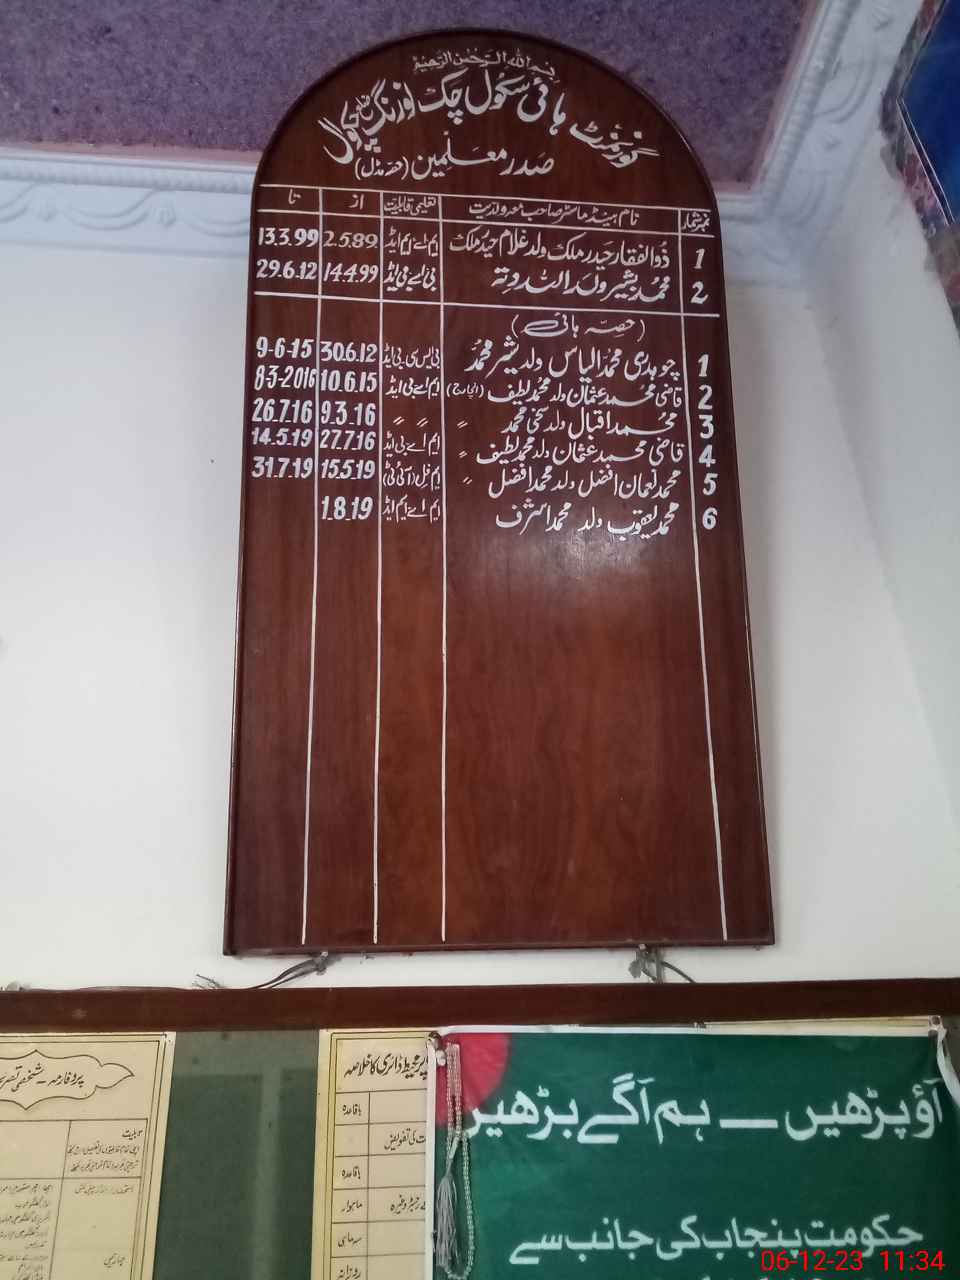 بسم اللہ الرحمٰن الرحیم
گورنمنٹ ہائی سکول چک نورنگ ضلع چکوال
صدر معلمین (حصہ مڈل)
نمبر شمار نام ہیڈ ماسٹر صاحب معہ ولدیت تعلیمی قابلیت از تا
1 ذوالفقار حیدر ملک ولد غلام حیدر ملک ایم اے ایم ایڈ 2.5.89 13.3.99
2 محمد بشیر ولد اللہ دتہ بی اے بی ایڈ 14.4.99 29.6.12
(حصہ ہائی)
1 چوہدری محمد الیاس ولد شیر محمد بی ایس سی بی ایڈ 30.6.12 9-6-15
2 قاضی محمد عثمان ولد محمد لطیف (انچارج) ایم اے بی ایڈ 10.6.15 8-3-2016
3 محمد اقبال ولد سخی محمد " " " " 9.3.16 26.7.16
4 قاضی محمد عثمان ولد محمد لطیف " ایم اے بی ایڈ 27.7.16 14.5.19
5 محمد نعمان افضل ولد محمد افضل " ایم فل (آئی ٹی) 15.5.19 31.7.19
6 محمد یعقوب ولد محمد اشرف ایم اے ایم ایڈ 1.8.19
پروفارمہ - شخصی
پر محیط ڈائری کا خلاصہ
باقاعدہ
باقاعدہ
ماہوار
سہ ماہی
روزانہ
آؤ پڑھیں — ہم آگے بڑھیں
حکومت پنجاب کی جانب سے
06-12-23 11:34